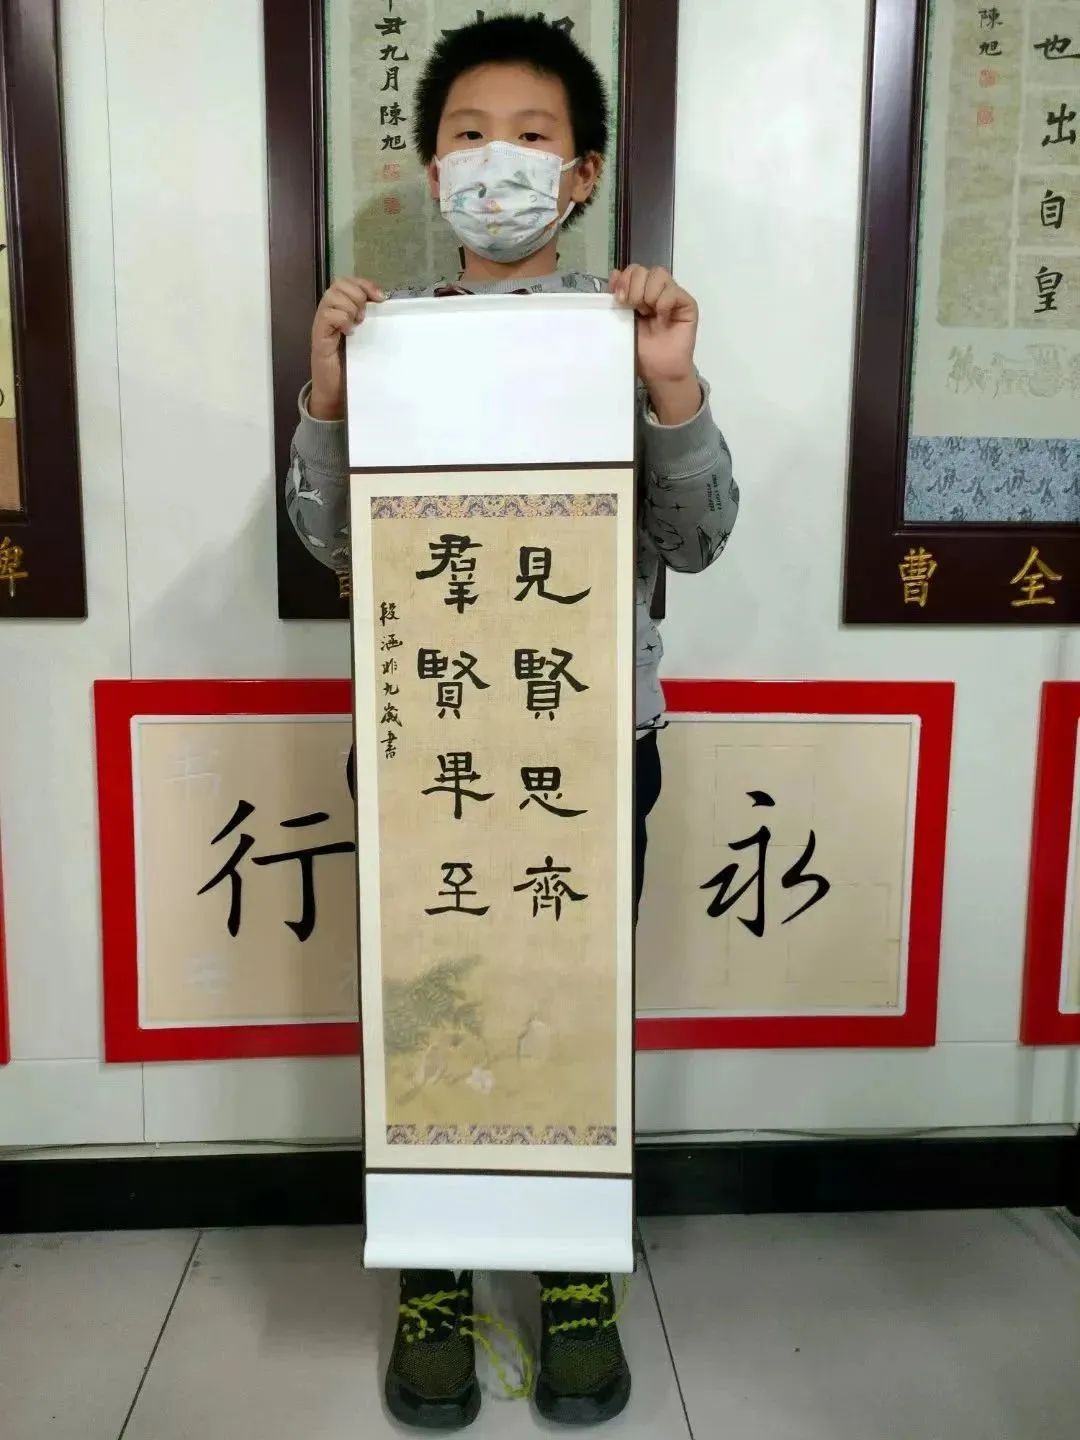 見賢思齊
羣賢畢至
段涵非九歲書
丑九月陳旭
陳旭
也出自皇
碑
曹全
行
永